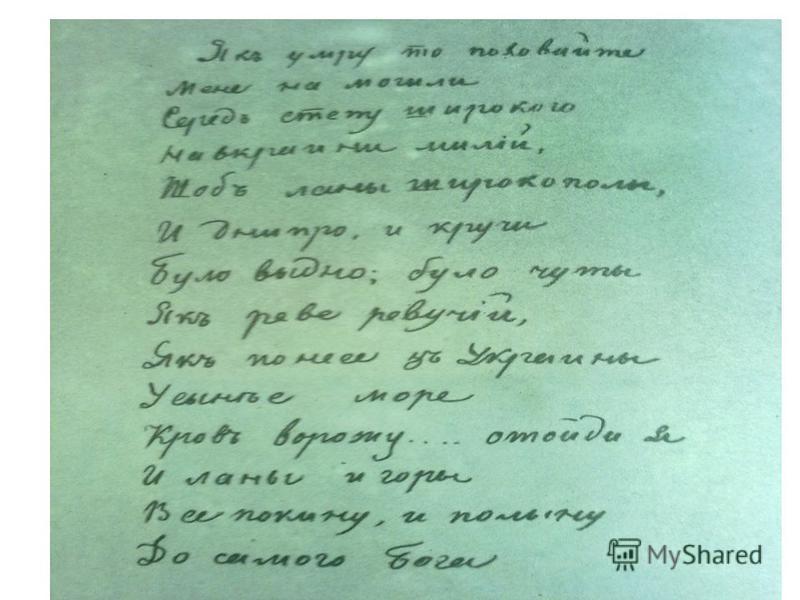 Якъ умру то поховайте
Мене на могили
Середъ степу широкого
На вкраини милій,
Щобъ ланы широкополы,
И Днипро, и кручи
Було выдно; було чуты
Якъ реве ревучій,
Якъ понесе зъ Украины
У сыньє море
Кровъ ворожу.... отойди я
И ланы и горы
Все покину, и полыну
До самого Бога
MyShared